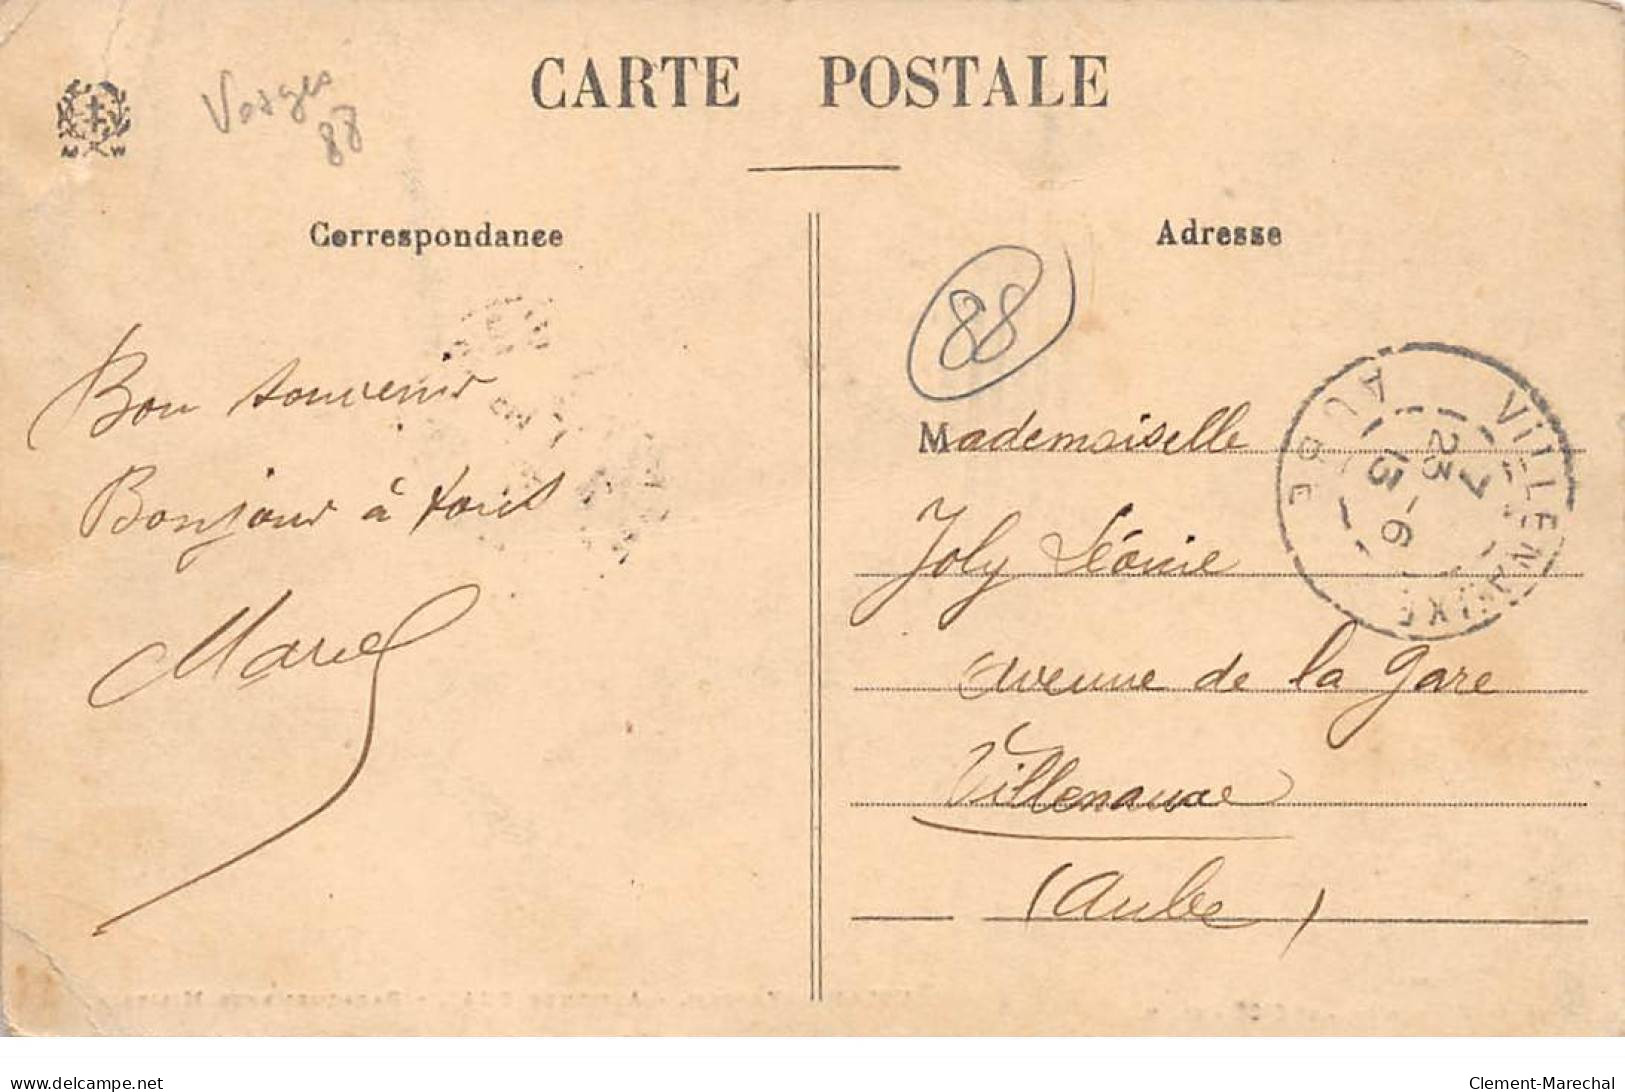 CARTE POSTALE
Vosges
88
Correspondance
Adresse
88
Bon souvenir
Bonjour à tous
Marcel
Mademoiselle
Joly Léonie
Avenue de la Gare
Villenauxe
(Aube)
VILLENAUXE
AUBE
7
23 - 6
13
delcampe.net
Clement-Marechal